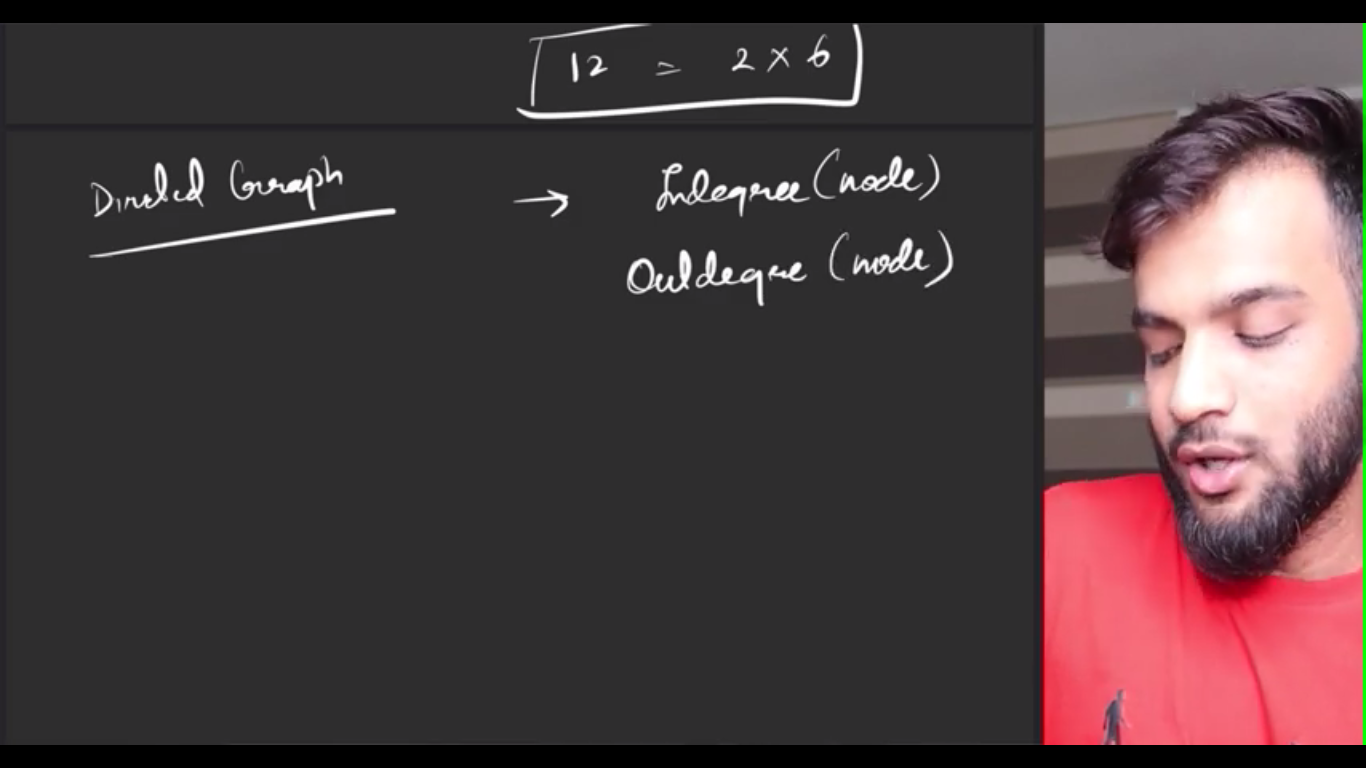 12 = 2 x 6
Directed Graph → Indegree (node)
Outdegree (node)